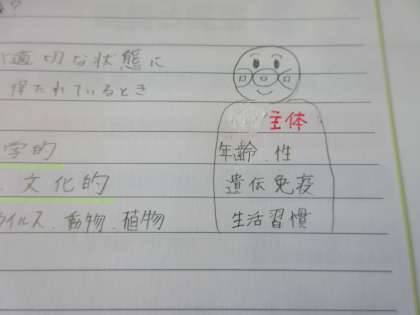 ?
適切な状態に
保たれているとき
主体
学的
年齢、性
文化的
遺伝免疫
ウイルス、動物、植物
生活習慣